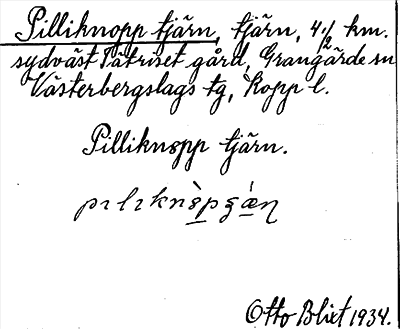 Pilliknopp tjärn, tjärn, 4 1/2 km.
sydväst Tätriset gård, Grangärde sn
Västerbergslags tg, Kopp l.
Pilliknopp tjärn.
Otto Blixt 1934.